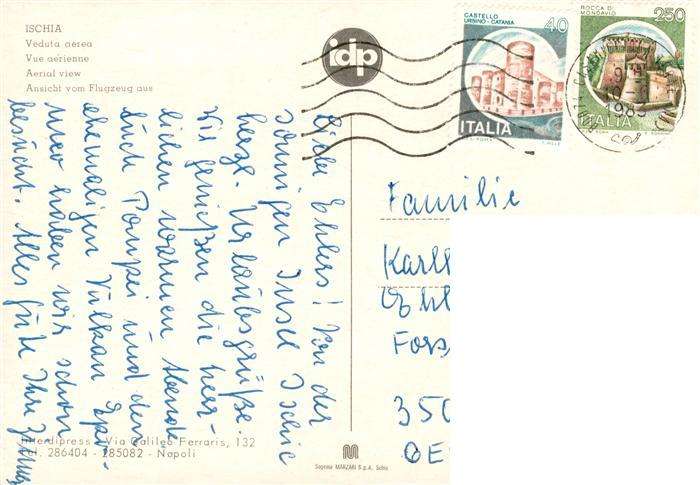 ISCHIA
Veduta aerea
Vue aérienne
Aerial view
Ansicht vom Flugzeug aus
idp
CASTELLO
URSINO - CATANIA
40
ITALIA
ROCCA DI
MONDAVIO
250
ITALIA
1985
Liebe Ehlers! Von der
sonnigen Insel Ischia
herzl. Urlaubsgrüße.
Wir genießen die herr-
lichen warmen Abende
Auch Pompei und den
ehemaligen Vulkan Epo-
meo haben wir schon
besucht. Alles Gute Ihre
Familie
Karl
Ehl
Fors
350
OE
Interdipress - Via Galileo Ferraris, 132
Tel. 286404 - 285082 - Napoli
Sagnose MARZARI S.p.A. Schio